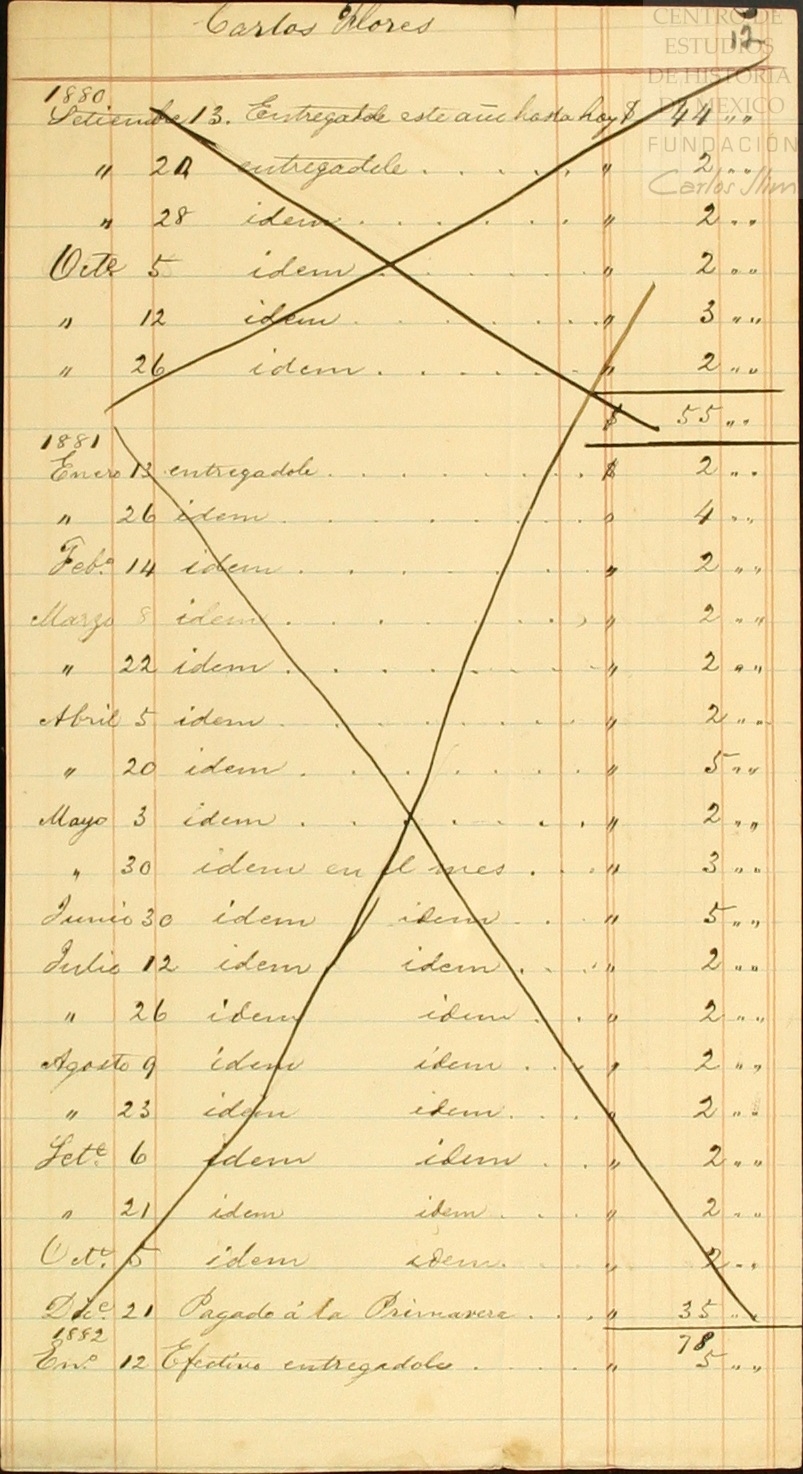 Carlos Flores
12
CENTRO DE
ESTUDIOS
DE HISTORIA
DE MEXICO
FUNDACIÓN
Carlos Slim
1880
Setiembre 13. Entregadole este año hasta hoy $ 44 „ „
„ 20 entregadole . . . . . „ 2 „ „
„ 28 idem . . . . . „ 2 „ „
Octe 5 idem . . . . . „ 2 „ „
„ 12 idem . . . . . „ 3 „ „
„ 26 idem . . . . . „ 2 „ „
$ 55 „ „
1881
Enero 13 entregadole . . . . . $ 2 „ „
„ 26 idem . . . . . „ 4 „ „
Febo. 14 idem . . . . . „ 2 „ „
Marzo 8 idem . . . . . „ 2 „ „
„ 22 idem . . . . . „ 2 „ „
Abril 5 idem . . . . . „ 2 „ „
„ 20 idem . . . . . „ 5 „ „
Mayo 3 idem . . . . . „ 2 „ „
„ 30 idem en el mes . . . „ 3 „ „
Junio 30 idem idem . . „ 5 „ „
Julio 12 idem idem . . . „ 2 „ „
„ 26 idem idem . . „ 2 „ „
Agosto 9 idem idem . . . „ 2 „ „
„ 23 idem idem . . . „ 2 „ „
Sete. 6 idem idem . . „ 2 „ „
„ 21 idem idem . . . „ 2 „ „
Oct. 5 idem idem . . . „ 2 „ „
Dice. 21 Pagado á la Primavera . . . „ 35 „ „
78
1882
Eno. 12 Efectivo entregadole . . . . „ 5 „ „